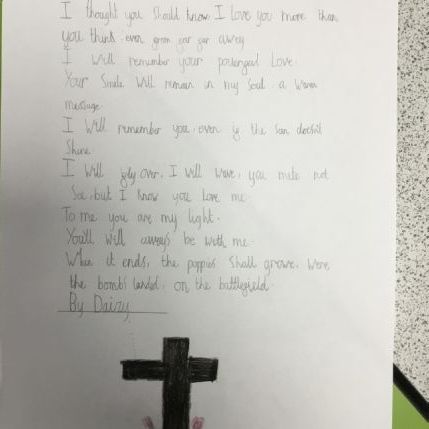 I thought you Should know I Love you more than
you think even from far far away
I Will remember your Love.
Your Smile Will remain in my Soul a Warm
message
I Will remember you even if the Sun doesn't
Shine.
I Will fly over. I Will wave, you mite not
See, but I know you Love me.
To me you are my light.
You'll Will always be with me.
When it ends, the poppies Shall growe. Were
the bombs landed, on the battlefield.
By Daizy